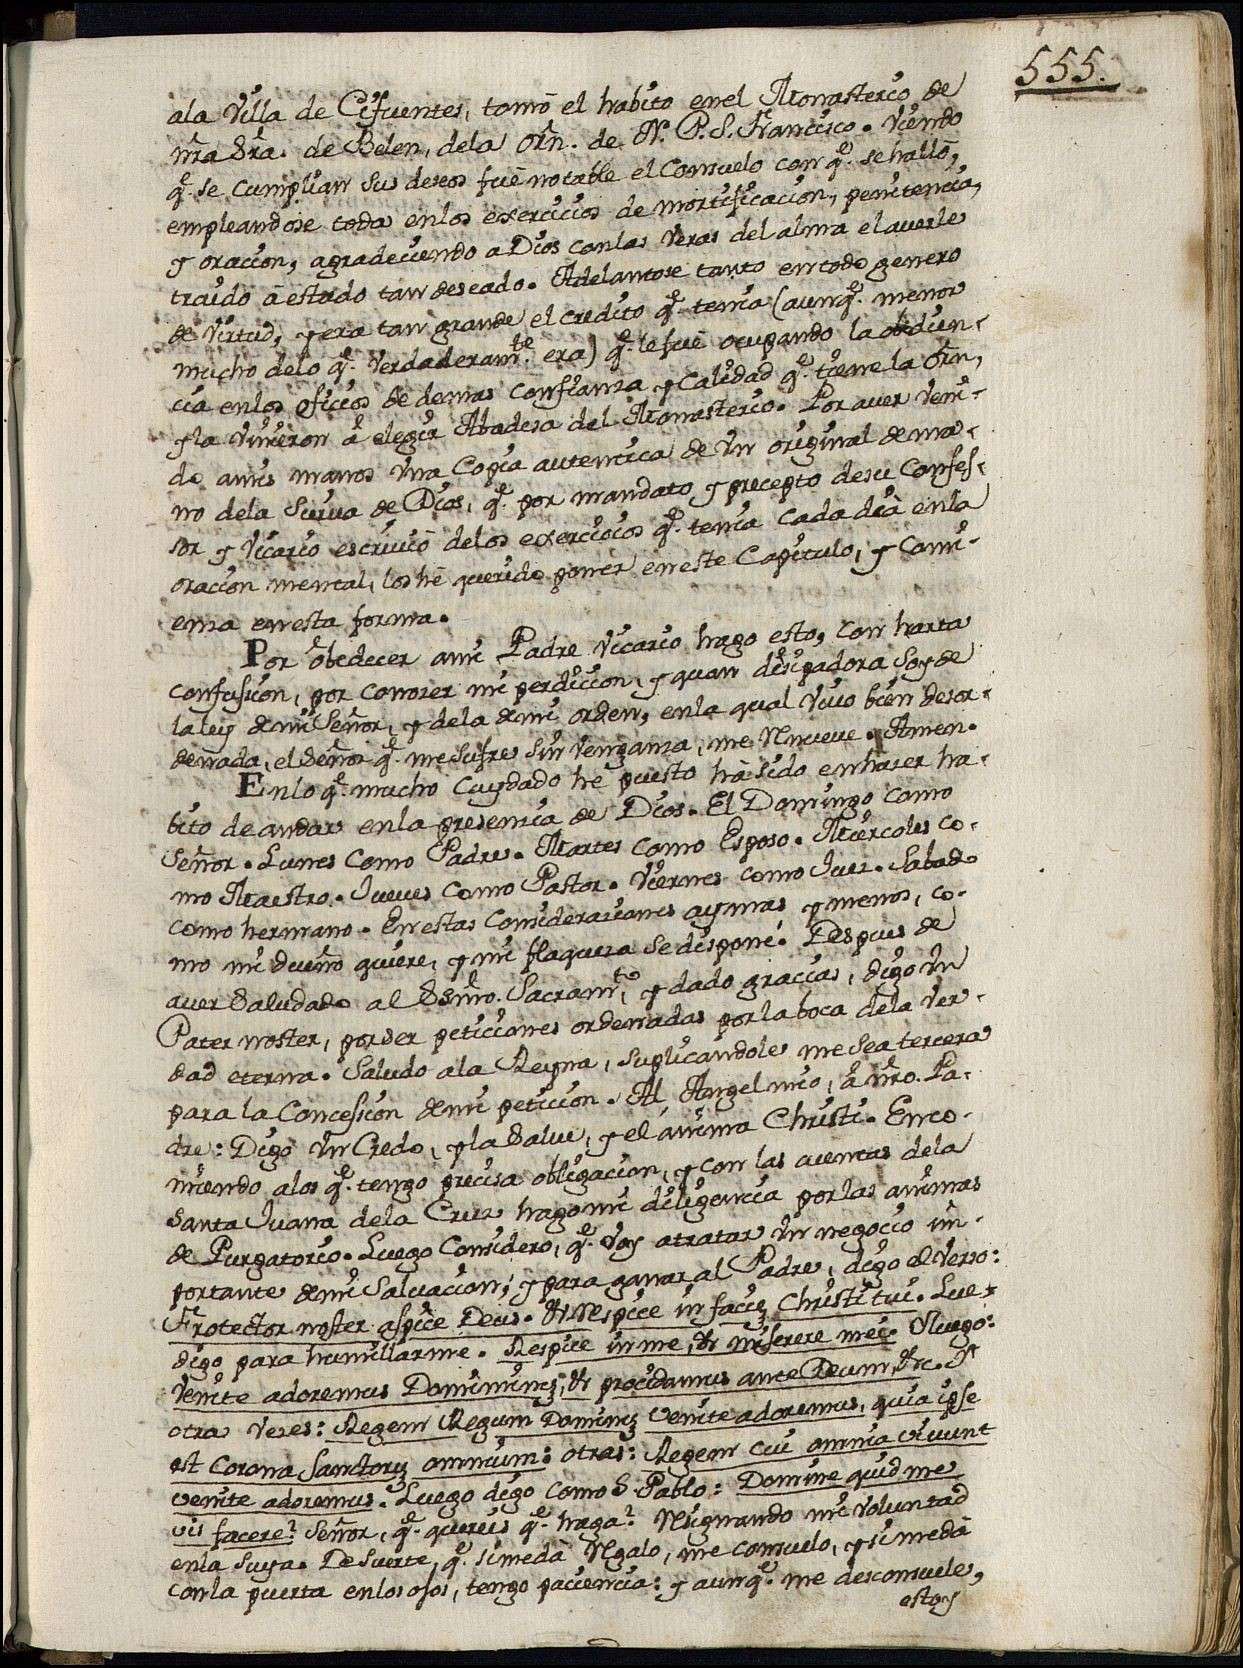 555.
ala Villa de Cifuentes, tomó el habito enel Monasterio de
nrã Srã. de Belen, dela Orñ. de N. P. S. Francisco. Viendo
q̃. se cumplian sus deseos fuè notable el Consuelo con q̃. se hallò,
empleandose toda enlos exercicios de mortificacion, penitencia,
y oracion, agradeciendo a Dios conlas veras del alma elaverle
traido à estado tan deseado. Adelantose tanto entodo genero
de Virtud, y era tan grande el credito q̃. tenia (aunq̃. menor
mucho delo q̃. verdaderamte. era) q̃. lefuè ocupando la obedien-
cia enlos oficios de demas Confianza y Calidad q̃. tiene la Orñ,
y la vinieron à elegir Abadesa del Monasterio. Por aver veni-
do amis manos vna Copia autentica de vn original de ma-
no dela Sierva de Dios, q̃. por mandato y precepto desu Confes-
sor y Vicario escriviò delos exercicios q̃. tenia Cada dia enla
oracion mental, los hè querido poner eneste Capitulo, y Comi-
enza enesta forma.
Por obedecer ami Padre Vicario hago esto, con harta
confusion, por conozer mi perdicion, y quan disipadora soy de
la ley demi Señor, y dela demi orden, enla qual vivo bien desor-
denada, el Señor q̃. me sufre sin venganza, me Renueve. Amen.
Enlo q̃. mucho Cuydado hè puesto hà sido en hazer ha-
bito de andar enla presencia de Dios. El Domingo como
Señor. Lunes como Padre. Martes como Esposo. Miercoles co-
mo Maestro. Jueves como Pastor. Viernes como Juez. Sabado
como hermano. Enestas Consideraciones ay mas y menos, co-
mo mi dueño quiere, y mi flaqueza se dispone. Despues de
aver saludado al Ssmo. Sacramto, y dado gracias, digo vn
Pater noster, por ser peticiones ordenadas por la boca dela ver-
dad eterna. Saludo ala Reyna, suplicandole me sea tercera
para la Concesion demi peticion. Al Angel mio, à nrõ. Pa-
dre: Digo vn Credo, y la Salve, y el anima Christi. Enco-
miendo alos q̃. tengo precisa obligacion, y con las cuentas dela
Santa Juana dela Cruz hago mi diligencia por las animas
de Purgatorio. Luego Considero, q̃. voy atratar vn negocio im-
portante demi Salvacion; y para ganar al Padre, digo el Verso:
Protector noster aspice Deus. & Respice in faciẽ Christi tui. Lue-
digo para humillarme. Respice in me, & miserere mei. Oluego:
Venite adoremus Dominum, & procidamus ante Deum, &c.
otra vezes: Regem Regum Dominũ venite adoremus, quia ipse
est Corona Sanctorũ omnium: otras: Regem cui omnia vivunt
venite adoremus. Luego digo como S. Pablo: Domine quid me
vis facere? Señor, q̃. quereis q̃. haga? Resignando mi voluntad
enla suya. De suerte, q̃. si me dà Regalo, me consuelo, y si me dà
conla puerta enlos ojos, tengo paciencia: y aunq̃. me desconsuele,
estoy